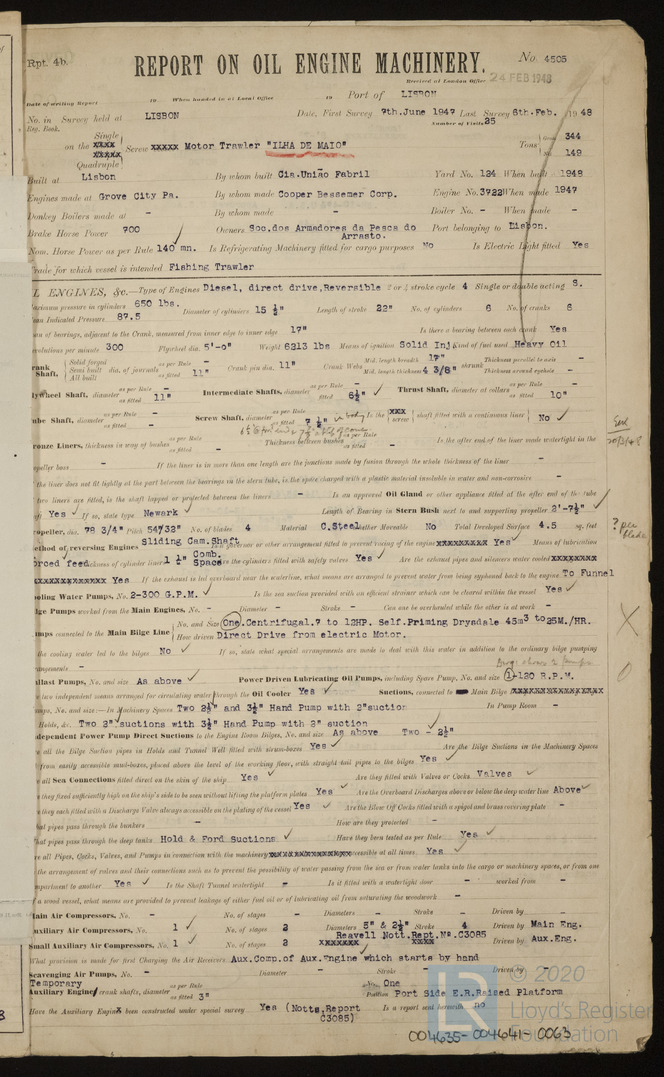 Rpt. 4b.
REPORT ON OIL ENGINE MACHINERY.
No. 4505
Received at London Office 24 FEB 1948
Date of writing Report 19 When handed in at Local Office 19 Port of LISBON
No. in Survey held at LISBON Date, First Survey 7th.June 1947 Last Survey 6th.Feb. 1948
Reg. Book. Number of Visits 25
Single
on the xxxx Screw xxxxx Motor Trawler "ILHA DE MAIO" Tons Gross 344
xxxxx Net 149
Quadruple
Built at Lisbon By whom built Cia.União Fabril Yard No. 124 When built 1948
Engines made at Grove City Pa. By whom made Cooper Bessemer Corp. Engine No. 3722 When made 1947
Donkey Boilers made at - By whom made - Boiler No. - When made -
Brake Horse Power 700 Owners Soc.dos Armadores da Pesca do Arrasto. Port belonging to Lisbon.
Nom. Horse Power as per Rule 140 mn. Is Refrigerating Machinery fitted for cargo purposes No Is Electric Light fitted Yes
Trade for which vessel is intended Fishing Trawler
L ENGINES, &c.—Type of Engines Diesel, direct drive,Reversible 2 or 4 stroke cycle 4 Single or double acting S.
aximum pressure in cylinders 650 lbs. Diameter of cylinders 15 ½" Length of stroke 22" No. of cylinders 6 No. of cranks 6
an Indicated Pressure 87.5
an of bearings, adjacent to the Crank, measured from inner edge to inner edge 17" Is there a bearing between each crank Yes
evolutions per minute 300 Flywheel dia. 5'-0" Weight 6213 lbs Means of ignition Solid Inj. Kind of fuel used Heavy Oil
rank Shaft, Solid forged Semi built All built dia. of journals as per Rule as fitted 11" Crank pin dia. 11" Crank Webs Mid. length breadth 17" Mid. length thickness 4 3/8" shrunk Thickness parallel to axis - Thickness around eyehole -
lywheel Shaft, diameter as per Rule as fitted 11" Intermediate Shafts, diameter as per Rule as fitted 6½" Thrust Shaft, diameter at collars as per Rule as fitted 10"
ube Shaft, diameter as per Rule as fitted - Screw Shaft, diameter as per Rule as fitted 7 ½" Is the xxx screw shaft fitted with a continuous liner No
ronze Liners, thickness in way of bushes as per Rule as fitted - Thickness between bushes as per Rule as fitted - Is the after end of the liner made watertight in the
opeller boss - If the liner is in more than one length are the junctions made by fusion through the whole thickness of the liner -
the liner does not fit tightly at the part between the bearings in the stern tube, is the space charged with a plastic material insoluble in water and non-corrosive -
two liners are fitted, is the shaft lapped or protected between the liners - Is an approved Oil Gland or other appliance fitted at the after end of the tube
ft Yes If so, state type Newark Length of Bearing in Stern Bush next to and supporting propeller 2'-7½"
ropeller, dia. 78 3/4" Pitch 54/32" No. of blades 4 Material C.Steel whether Moveable No Total Developed Surface 4.5 sq. feet
? per blade
ethod of reversing Engines Sliding Cam.Shaft Is a governor or other arrangement fitted to prevent racing of the engine xxxxxxxxx Yes Means of lubrication
orced feed Thickness of cylinder liners 1 ½" Comb. Space Are the cylinders fitted with safety valves Yes Are the exhaust pipes and silencers water cooled xxxxxxxx
xxxxxxxxxxxxx Yes If the exhaust is led overboard near the waterline, what means are arranged to prevent water from being syphoned back to the engine To Funnel
ooling Water Pumps, No. 2-300 G.P.M. Is the sea suction provided with an efficient strainer which can be cleared within the vessel Yes
lge Pumps worked from the Main Engines, No. - Diameter - Stroke - Can one be overhauled while the other is at work -
umps connected to the Main Bilge Line No. and Size One.Centrifugal.7 to 12HP. Self.Priming Drysdale 45m3 to 25M./HR.
How driven Direct Drive from electric Motor.
the cooling water led to the bilges No If so, state what special arrangements are made to deal with this water in addition to the ordinary bilge pumping
rangements -
allast Pumps, No. and size As above Power Driven Lubricating Oil Pumps, including Spare Pump, No. and size 1-120 R.P.M.
re two independent means arranged for circulating water through the Oil Cooler Yes Suctions, connected to Main Bilge xxxxxxxxxxxxxxxxx
umps, No. and size:—In Machinery Spaces Two 2½" and 3½" Hand Pump with 2"suction In Pump Room -
Holds, &c. Two 2" suctions with 3½" Hand Pump with 2" suction
dependent Power Pump Direct Suctions to the Engine Room Bilges, No. and size As above Two - 2½"
re all the Bilge Suction pipes in Holds and Tunnel Well fitted with strum-boxes Yes Are the Bilge Suctions in the Machinery Spaces
from easily accessible mud-boxes, placed above the level of the working floor, with straight tail pipes to the bilges Yes
all Sea Connections fitted direct on the skin of the ship Yes Are they fitted with Valves or Cocks Valves
they fixed sufficiently high on the ship's side to be seen without lifting the platform plates Yes Are the Overboard Discharges above or below the deep water line Above
they each fitted with a Discharge Valve always accessible on the plating of the vessel Yes Are the Blow Off Cocks fitted with a spigot and brass covering plate -
hat pipes pass through the bunkers - How are they protected -
hat pipes pass through the deep tanks Hold & Ford Suctions Have they been tested as per Rule Yes
re all Pipes, Cocks, Valves, and Pumps in connection with the machinery xxxxxxxxxxxxxxx accessible at all times Yes
the arrangement of valves and their connections such as to prevent the possibility of water passing from the sea or from water tanks into the cargo or machinery spaces, or from one
mpartment to another Yes Is the Shaft Tunnel watertight - Is it fitted with a watertight door - worked from -
a wood vessel, what means are provided to prevent leakage of either fuel oil or lubricating oil from saturating the woodwork -
ain Air Compressors, No. - No. of stages - Diameters - Stroke - Driven by -
uxiliary Air Compressors, No. 1 No. of stages 2 Diameters 5" & 2½" Stroke 4 Driven by Main Eng.
Small Auxiliary Air Compressors, No. 1 No. of stages 2 Reavell Nott.Rept.No.C3085 xxxxxxx xxxx Driven by Aux.Eng.
What provision is made for first Charging the Air Receivers Aux.Comp.of Aux.Engine which starts by hand
Scavenging Air Pumps, No. - Diameter - Stroke - Driven by -
Temporary
Auxiliary Engine crank shafts, diameter as per Rule as fitted 3" One Position Port Side E.R.Raised Platform
Have the Auxiliary Engine x been constructed under special survey Yes (Notts.Report C3085) Is a report sent herewith no
© 2020
Lloyd's Register
Foundation
004635-004641-0063